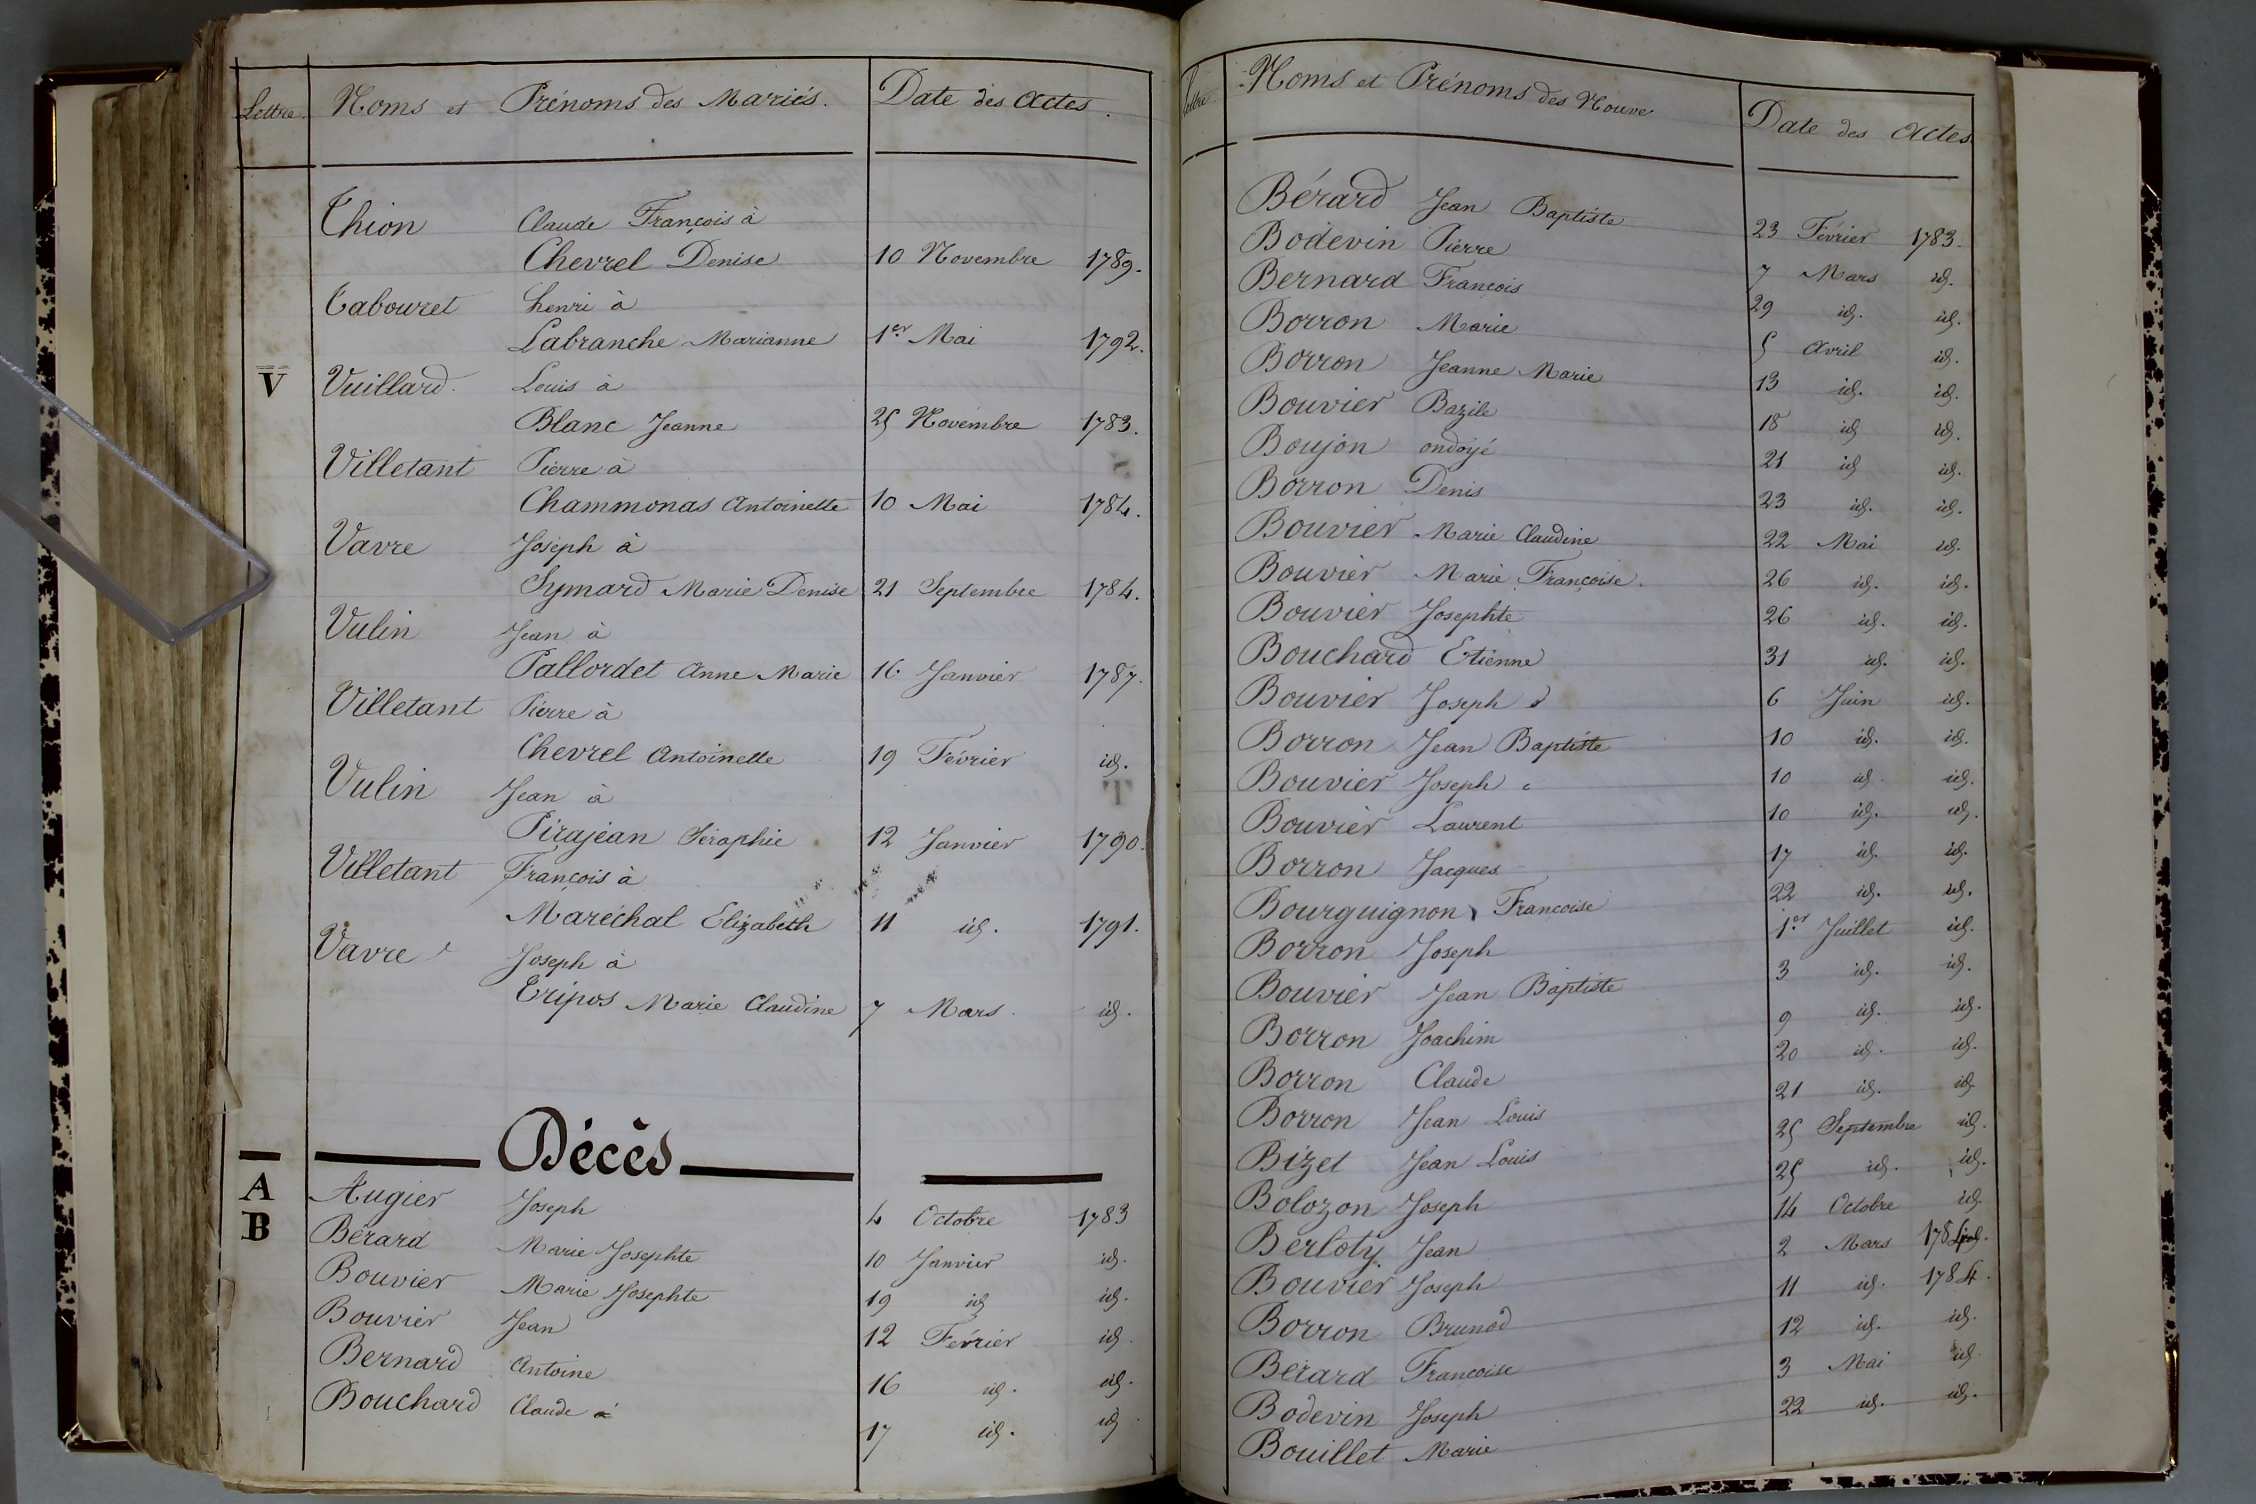 Lettre. Noms et Prénoms des Mariés. Date des Actes.
Thion Claude François à
Chevrel Denise 10 Novembre 1789.
Tabouret henri à
Labranche Marianne 1er Mai 1792.
V Vuillard. Louis à
Blanc Jeanne 25 Novembre 1783.
Villetant Pierre à
Chammonas Antoinette 10 Mai 1784.
Vavre Joseph à
Symard Marie Denise 21 Septembre 1784.
Vulin Jean à
Pallordet Anne Marie 16 Janvier 1787.
Villetant Pierre à
Chevrel Antoinette 19 Février id.
Vulin Jean à
Pirajean Séraphie 12 Janvier 1790.
Villetant François à
Maréchal Elizabeth 11 id. 1791.
Vavre Joseph à
Tripos Marie Claudine 7 Mars id.
Décès
A Augier Joseph 4 Octobre 1783
B Bérard Marie Josephte 10 Janvier id.
Bouvier Marie Josephte 19 id id.
Bouvier Jean 12 Février id.
Bernard Antoine 16 id. id.
Bouchard Claude à 17 id. id.
Lettre Noms et Prénoms des Nouve Date des Actes
Bérard Jean Baptiste 23 Février 1783.
Bodevin Pierre 7 Mars id.
Bernard François 29 id. id.
Borron Marie 5 Avril id.
Borron Jeanne Marie 13 id. id.
Bouvier Bazile 18 id id.
Boujon ondoyé 21 id id.
Borron Denis 23 id. id.
Bouvier Marie Claudine 22 Mai id.
Bouvier Marie Françoise. 26 id. id.
Bouvier Josephte 26 id. id.
Bouchard Etienne 31 id. id.
Bouvier Joseph 6 Juin id.
Borron Jean Baptiste 10 id. id.
Bouvier Joseph 10 id. id.
Bouvier Laurent 10 id. id.
Borron Jacques 17 id. id.
Bourguignon Francoise 22 id. id.
Borron Joseph 1er Juillet id.
Bouvier Jean Baptiste 3 id. id.
Borron Joachim 9 id. id.
Borron Claude 20 id. id.
Borron Jean Louis 21 id. id
Bizet Jean Louis 25 Septembre id.
Bolozon Joseph 25 id. id.
Berloty Jean 14 Octobre id.
Bouvier Joseph 2 Mars 1784 id.
Borron Brunod 11 id. 1784.
Berard Francoise 12 id. id.
Bodevin Joseph 3 Mai id.
Bouillet Marie 22 id. id.